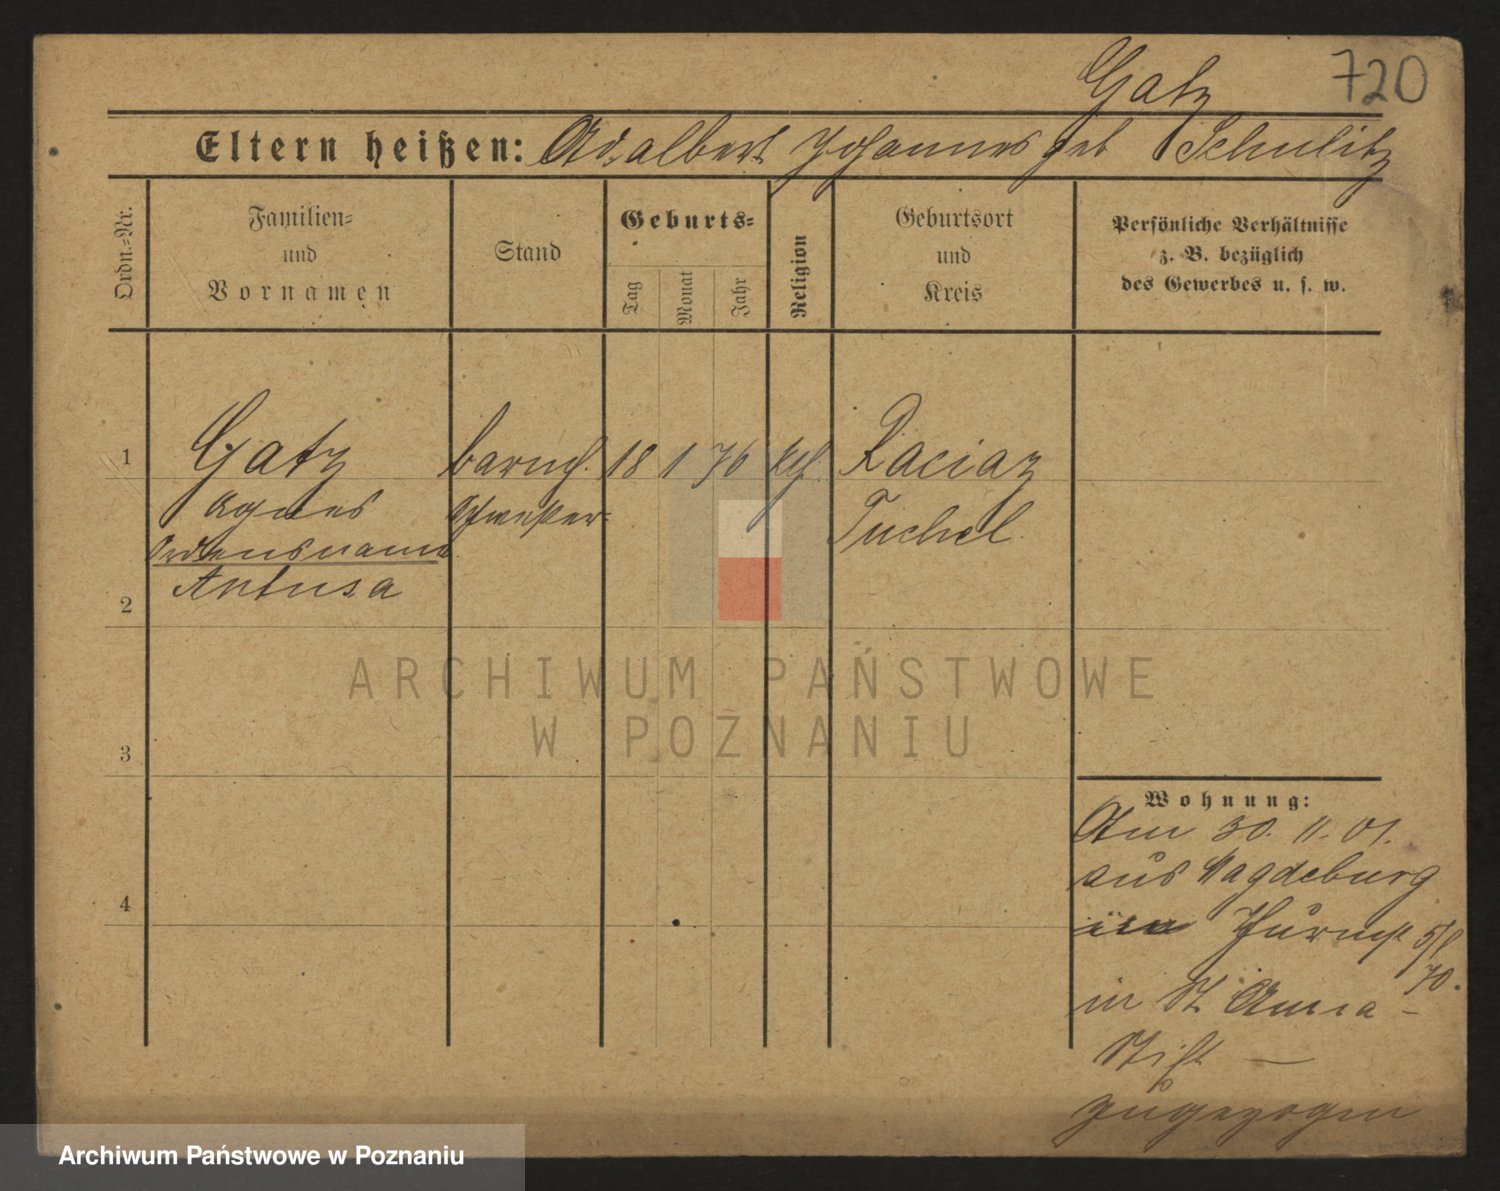 Gatz 720
Eltern heißen: Adalbert Johannes geb Schulitz
Ordn.-Nr.
Familien-
und
Vornamen
Stand
Geburts-
Tag
Monat
Jahr
Religion
Geburtsort
und
Kreis
Persönliche Verhältnisse
z. B. bezüglich
des Gewerbes u. s. w.
1 Gatz barmh. 18 1 76 kth. Raciaz
Agnes Schwester Tuchel.
Ordensname
2 Antusa
3
4
Wohnung:
Am 30. 11. 01.
aus Magdeburg
in
70.
in St Anna-
Stift —
zugezogen
ARCHIWUM PAŃSTWOWE
W POZNANIU
Archiwum Państwowe w Poznaniu